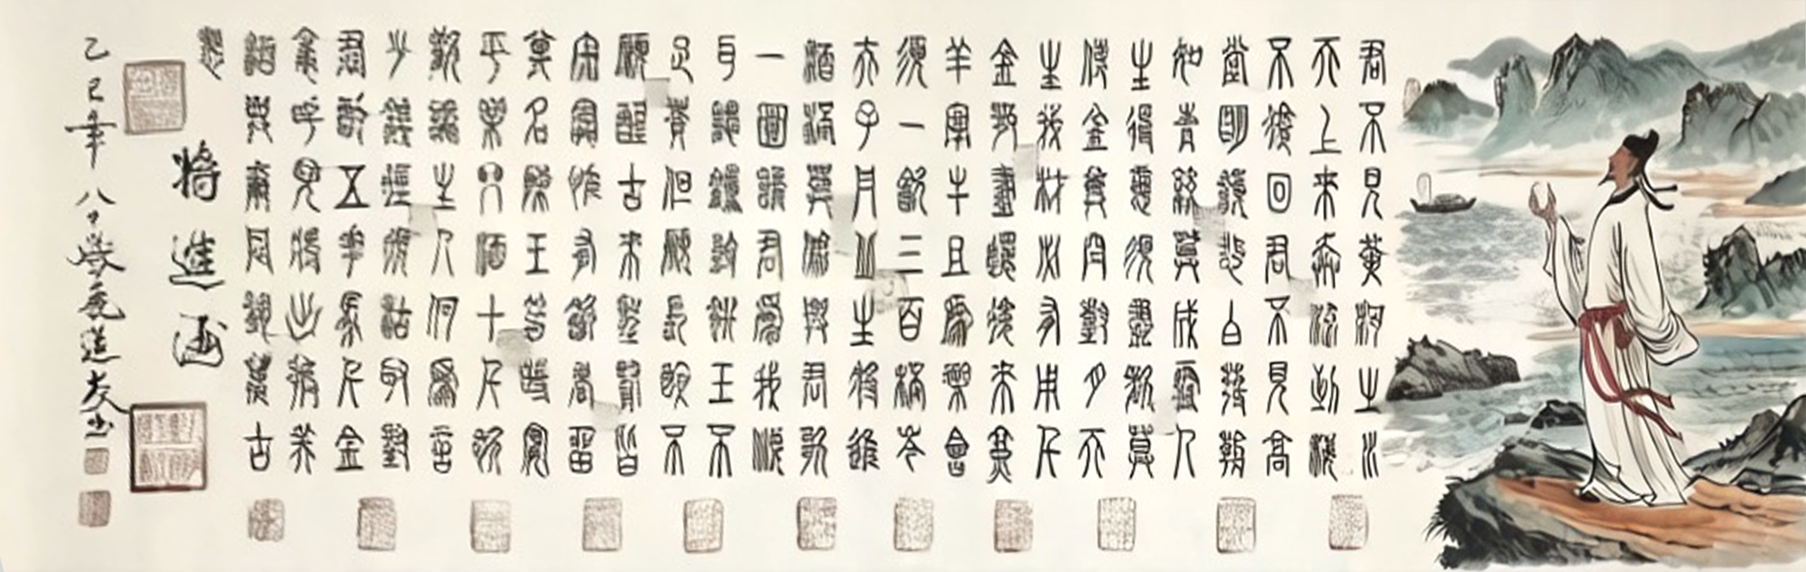 君不見黃河之水
天上來奔流到海
不復回君不見高
堂明鏡悲白髮朝
如青絲莫成雪人
生得意須盡歡莫
使金樽空對月天
生我材必有用千
金散盡還復來烹
羊宰牛且為樂會
須一飲三百杯岑
夫子丹丘生將進
酒杯莫停與君歌
一曲請君為我傾
耳聽鐘鼓饌玉不
足貴但願長醉不
願醒古來聖賢皆
寂寞惟有飲者留
其名陳王昔時宴
平樂斗酒十千恣
歡謔主人何為言
少錢徑須沽取對
君酌五花馬千金
裘呼兒將出換美
酒與爾同銷萬古
愁
將進酒
乙巳年八十歲道友書